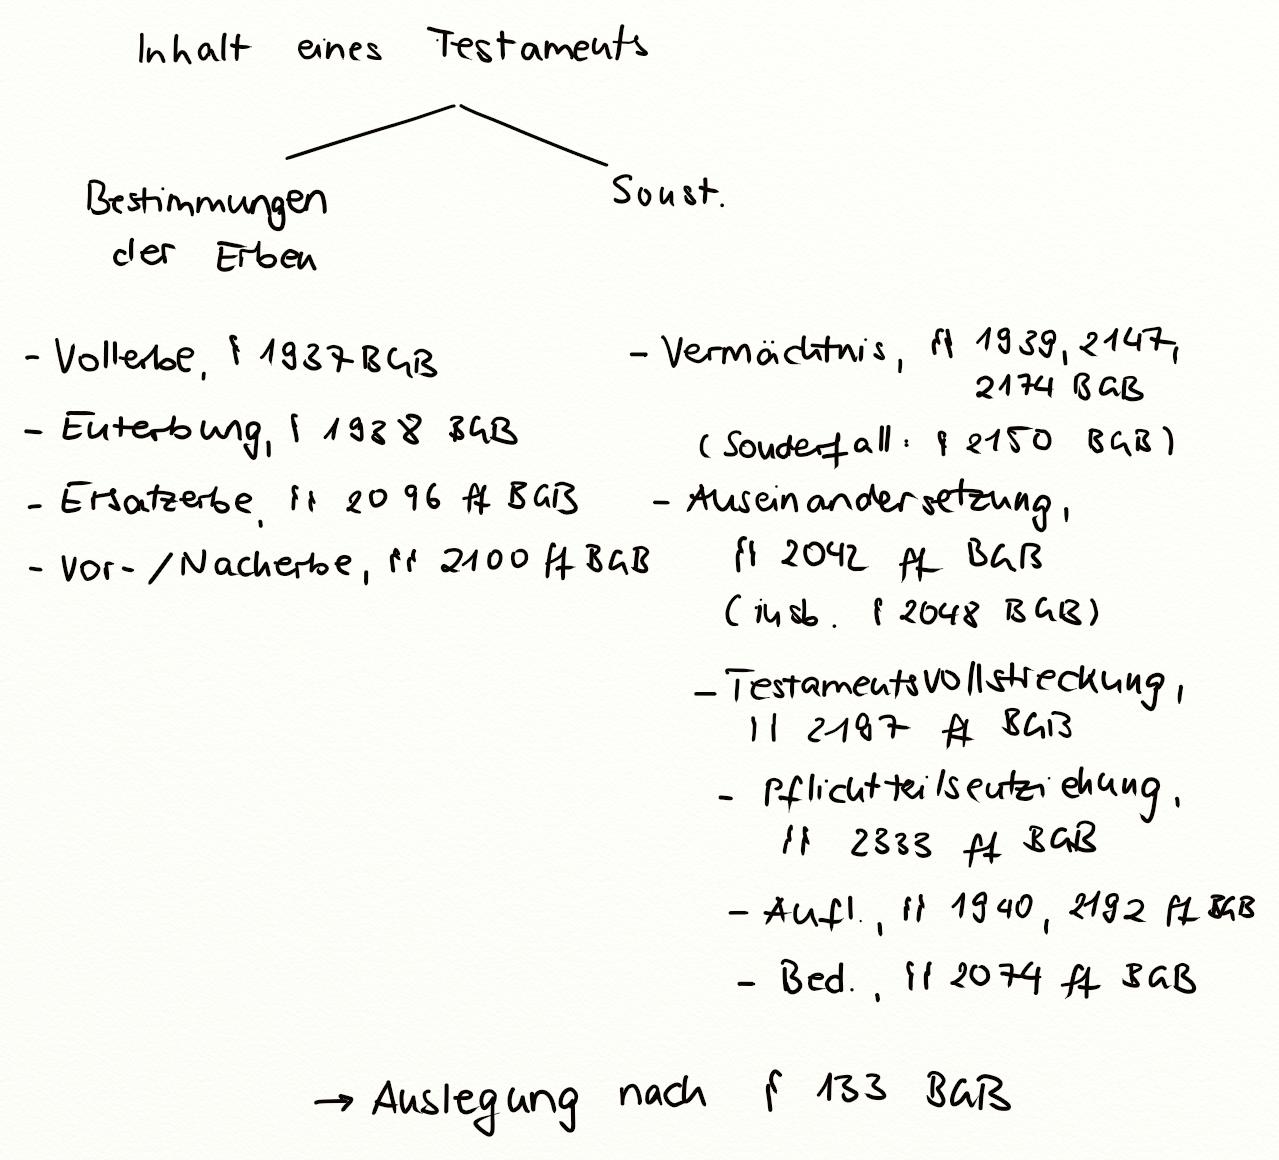 Inhalt eines Testaments
Bestimmungen
der Erben
Sonst.
- Vollerbe, § 1937 BGB
- Enterbung, § 1938 BGB
- Ersatzerbe, §§ 2096 ff BGB
- Vor-/Nacherbe, §§ 2100 ff BGB
- Vermächtnis, §§ 1939, 2147,
2174 BGB
(Sonderfall: § 2150 BGB)
- Auseinandersetzung,
§§ 2042 ff BGB
(insb. § 2048 BGB)
- Testamentsvollstreckung,
§§ 2197 ff BGB
- Pflichtteilsentziehung,
§§ 2333 ff BGB
- Aufl., §§ 1940, 2192 ff BGB
- Bed., §§ 2074 ff BGB
→ Auslegung nach § 133 BGB